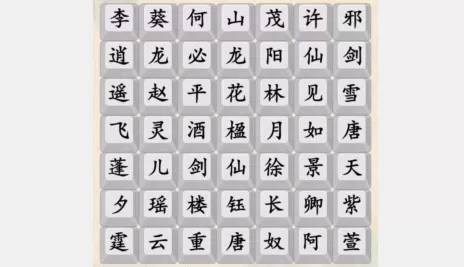 李葵何山茂许邪
逍龙必龙阳仙剑
遥赵平花林见雪
飞灵酒楹月如唐
蓬儿剑仙徐景天
夕瑶楼钰长卿紫
霆云重唐奴阿萱